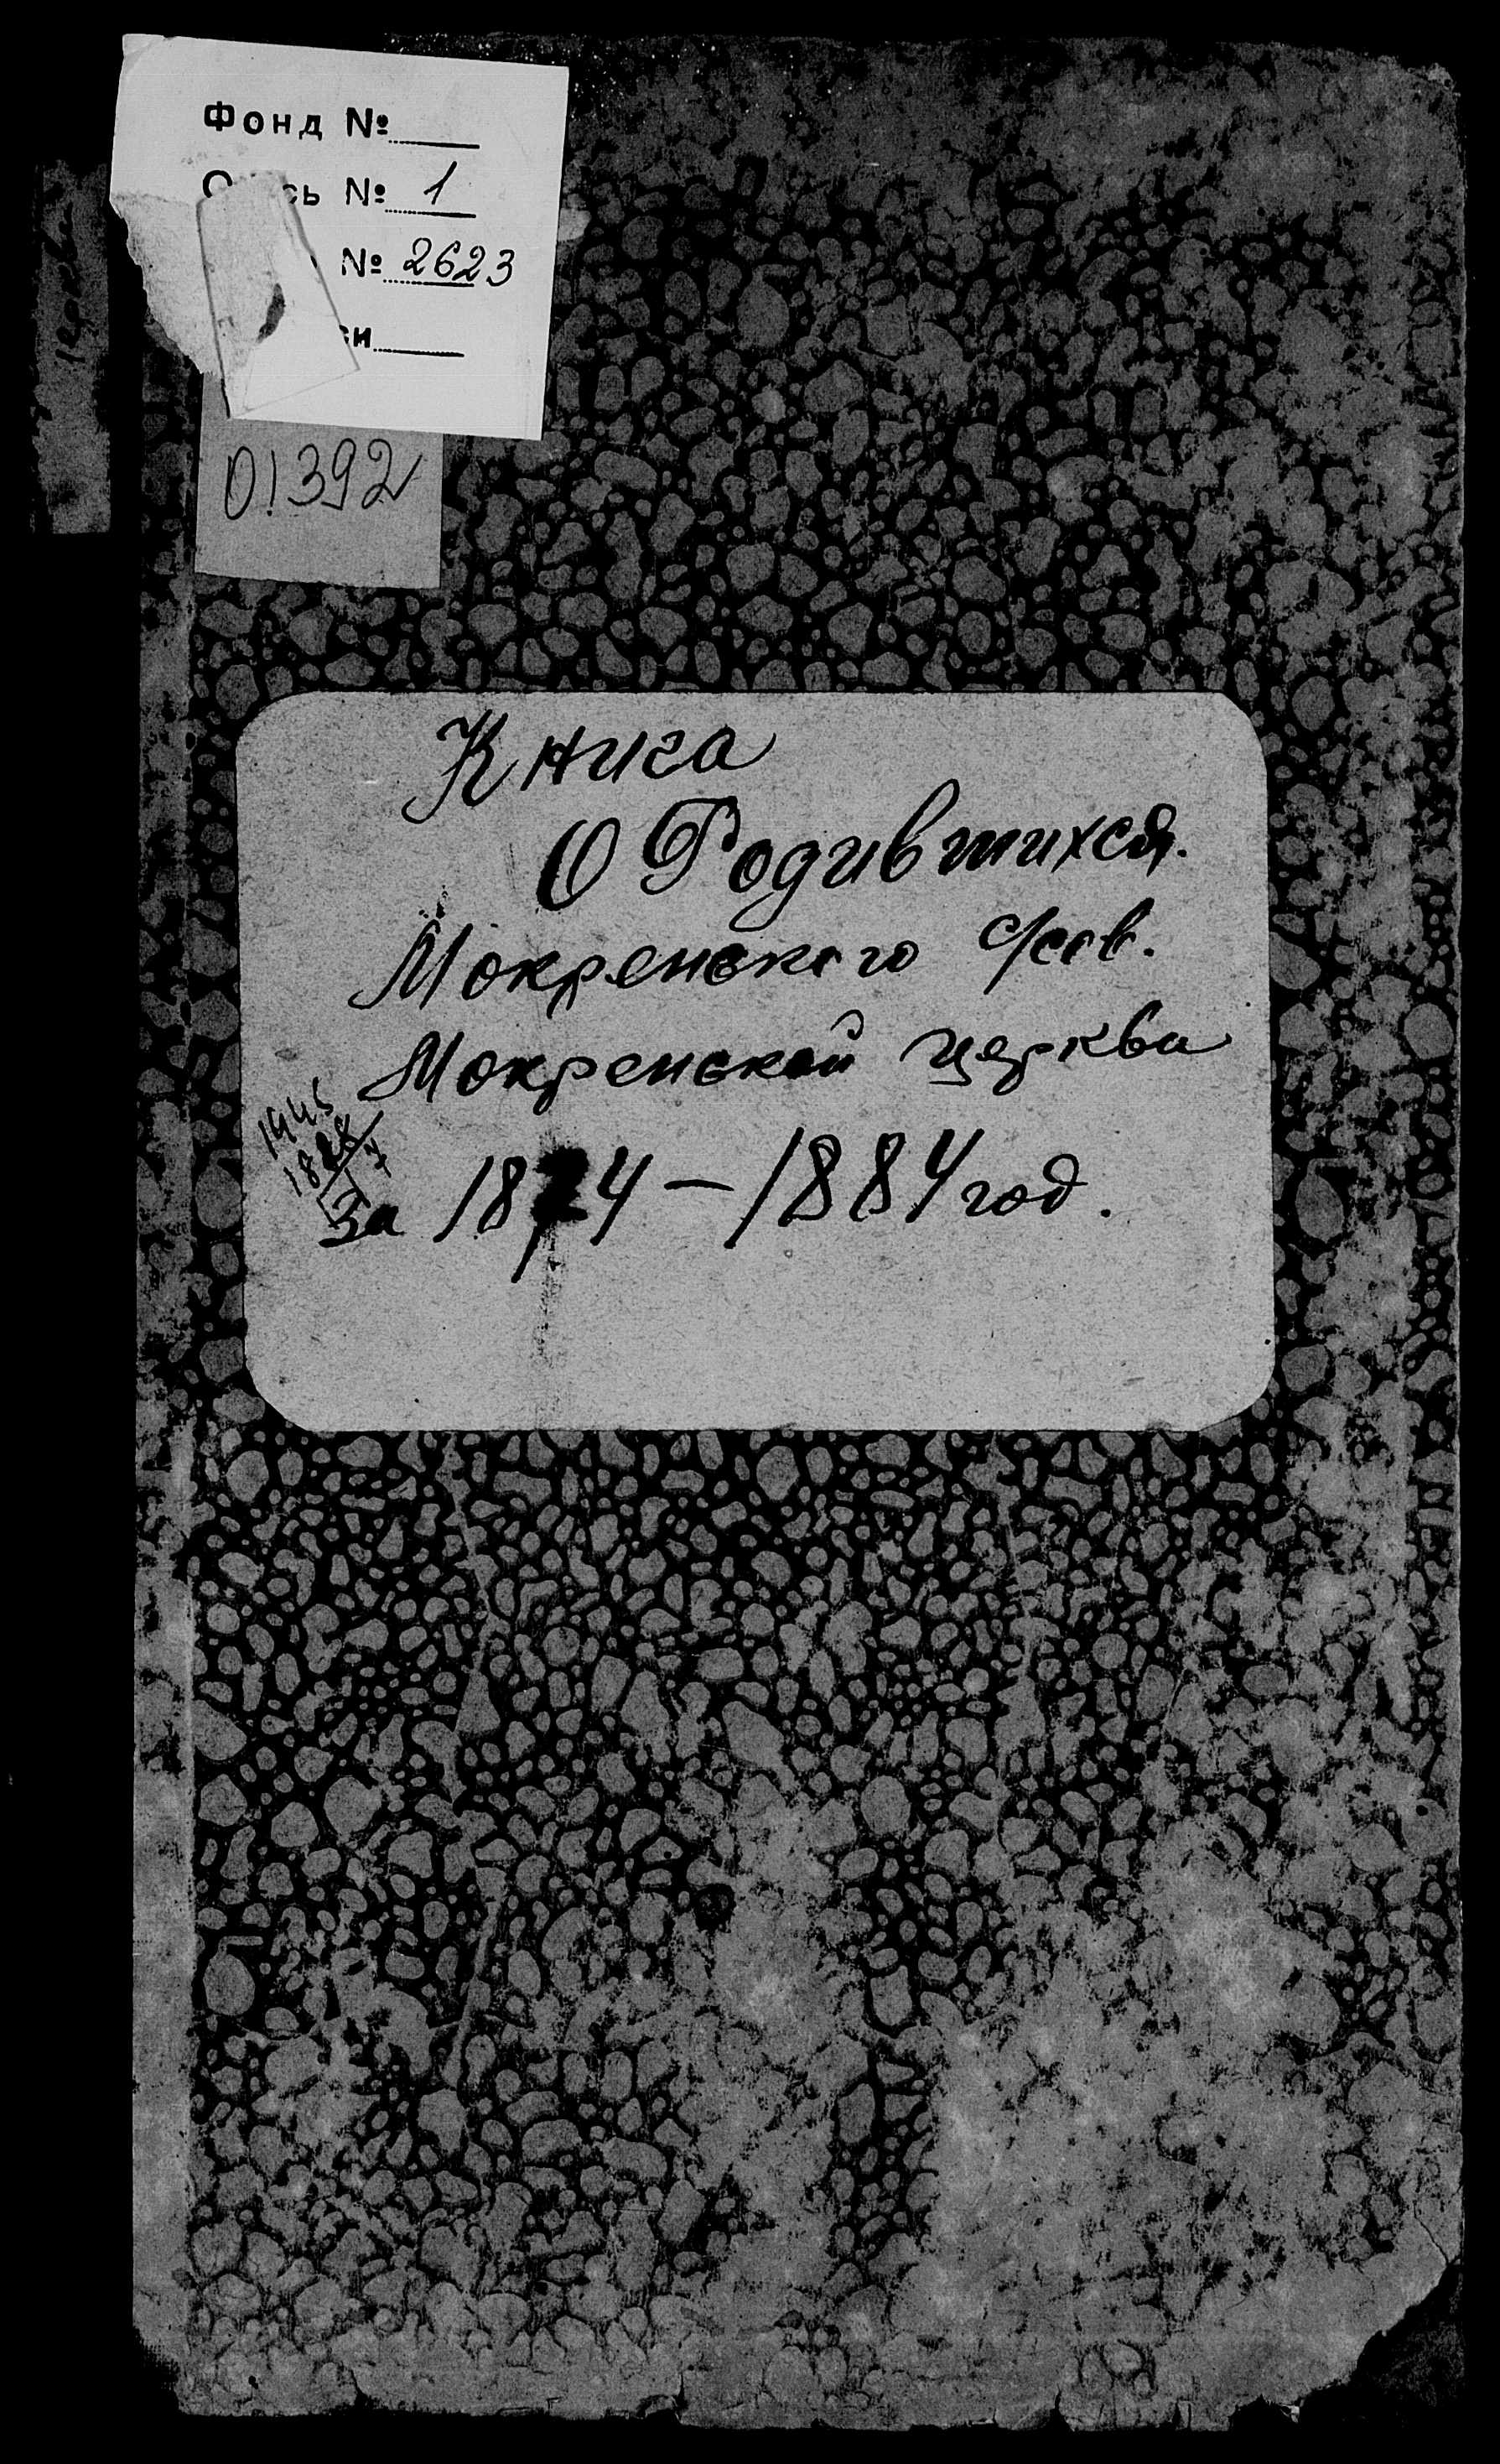 Фонд №
О сь № 1
№ 2623
си
01392
Книга
О Родившихся.
Мокренского с/сов.
Мокренской церква
1945
За 1874 – 1884 год.